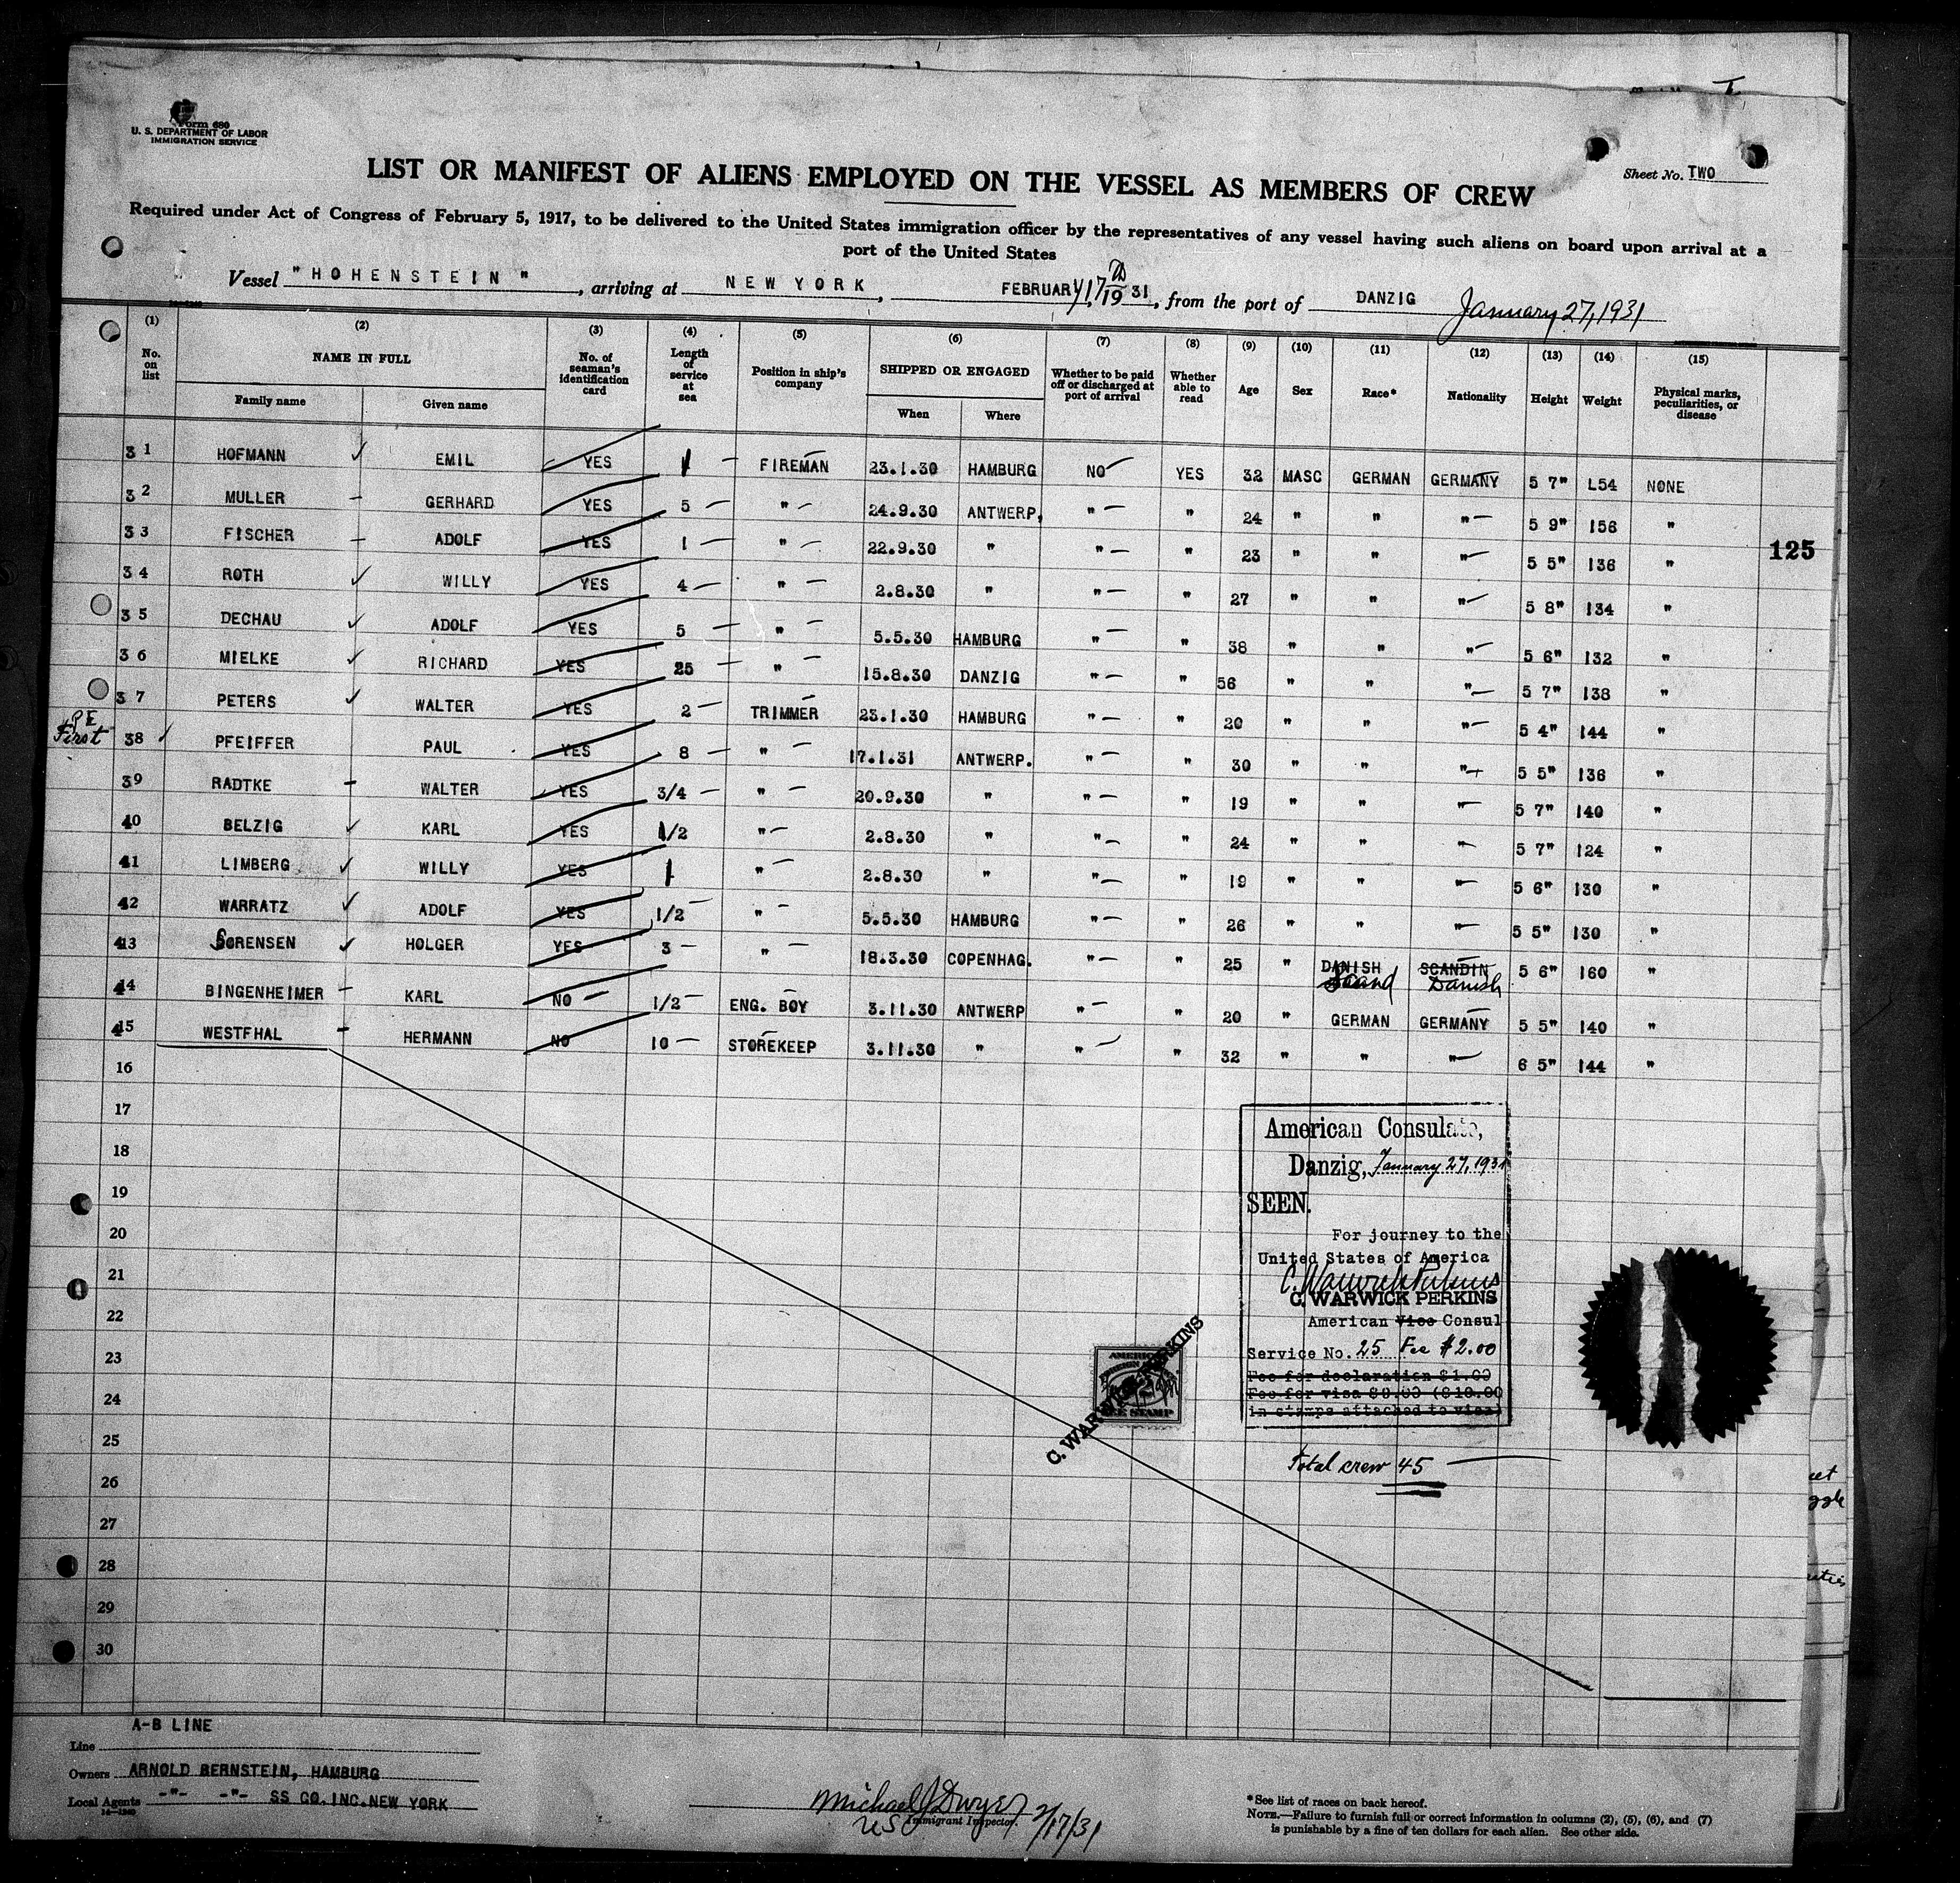 Form 680
U. S. DEPARTMENT OF LABOR
IMMIGRATION SERVICE
Sheet No. TWO
LIST OR MANIFEST OF ALIENS EMPLOYED ON THE VESSEL AS MEMBERS OF CREW
Required under Act of Congress of February 5, 1917, to be delivered to the United States immigration officer by the representatives of any vessel having such aliens on board upon arrival at a
port of the United States
Vessel "HOHENSTEIN", arriving at NEW YORK, FEBRUARY 17th 1931, from the port of DANZIG January 27, 1931
(1) (2) (3) (4) (5) (6) (7) (8) (9) (10) (11) (12) (13) (14) (15)
No. on list NAME IN FULL No. of seaman's identification card Length of service at sea Position in ship's company SHIPPED OR ENGAGED Whether to be paid off or discharged at port of arrival Whether able to read Age Sex Race* Nationality Height Weight Physical marks, peculiarities, or disease
Family name Given name When Where
31 HOFMANN ✓ EMIL YES 1 — FIREMAN 23.1.30 HAMBURG NO YES 32 MASC GERMAN GERMANY 5 7" L54 NONE
32 MULLER — GERHARD YES 5 — " — 24.9.30 ANTWERP, " — " 24 " " " — 5 9" 156 "
33 FISCHER — ADOLF YES 1 — " — 22.9.30 " " — " 23 " " " — 5 5" 136 "
125
34 ROTH ✓ WILLY YES 4 — " — 2.8.30 " " — " 27 " " " — 5 8" 134 "
35 DECHAU ✓ ADOLF YES 5 — " — 5.5.30 HAMBURG " — " 38 " " " — 5 6" 132 "
36 MIELKE ✓ RICHARD YES 25 — " — 15.8.30 DANZIG " — " 56 " " " — 5 7" 138 "
37 PETERS ✓ WALTER YES 2 — TRIMMER 23.1.30 HAMBURG " — " 20 " " " — 5 4" 144 "
PE First 38 ✓ PFEIFFER PAUL YES 8 — " — 17.1.31 ANTWERP. " — " 30 " " " — 5 5" 136 "
39 RADTKE — WALTER YES 3/4 — " — 20.9.30 " " — " 19 " " " — 5 7" 140 "
40 BELZIG ✓ KARL YES 1/2 " — 2.8.30 " " — " 24 " " " — 5 7" 124 "
41 LIMBERG ✓ WILLY YES 1 " — 2.8.30 " " — " 19 " " " — 5 6" 130 "
42 WARRATZ ✓ ADOLF YES 1/2 — " — 5.5.30 HAMBURG " — " 26 " " " — 5 5" 130 "
43 SORENSEN ✓ HOLGER YES 3 — " — 18.3.30 COPENHAG. " — " 25 " DANISH SCANDIN 5 6" 160 "
Scand Danish
44 BINGENHEIMER — KARL NO — 1/2 — ENG. BOY 3.11.30 ANTWERP " — " 20 " GERMAN GERMANY 5 5" 140 "
45 WESTFHAL — HERMANN NO 10 — STOREKEEP 3.11.30 " " — " 32 " " " — 6 5" 144 "
16
17
18
19
20
21
22
23
24
25
26
27
28
29
30
American Consulate,
Danzig, January 27, 1931
SEEN.
For journey to the
United States of America
C. Warwick Perkins
C. WARWICK PERKINS
American Vice Consul
Service No. 25 Fee $2.00
Fee for declaration $1.00
Fee for visa $9.00 ($10.00
in stamps attached to visa)
C. WARWICK PERKINS
Total crew 45
Line A-B LINE
Owners ARNOLD BERNSTEIN, HAMBURG
Local Agents -"- -"- SS CO.INC.NEW YORK
14—1240
Michael J Dwyer 2/17/31
US
Immigrant Inspector.
*See list of races on back hereof.
NOTE.—Failure to furnish full or correct information in columns (2), (5), (6), and (7)
is punishable by a fine of ten dollars for each alien. See other side.